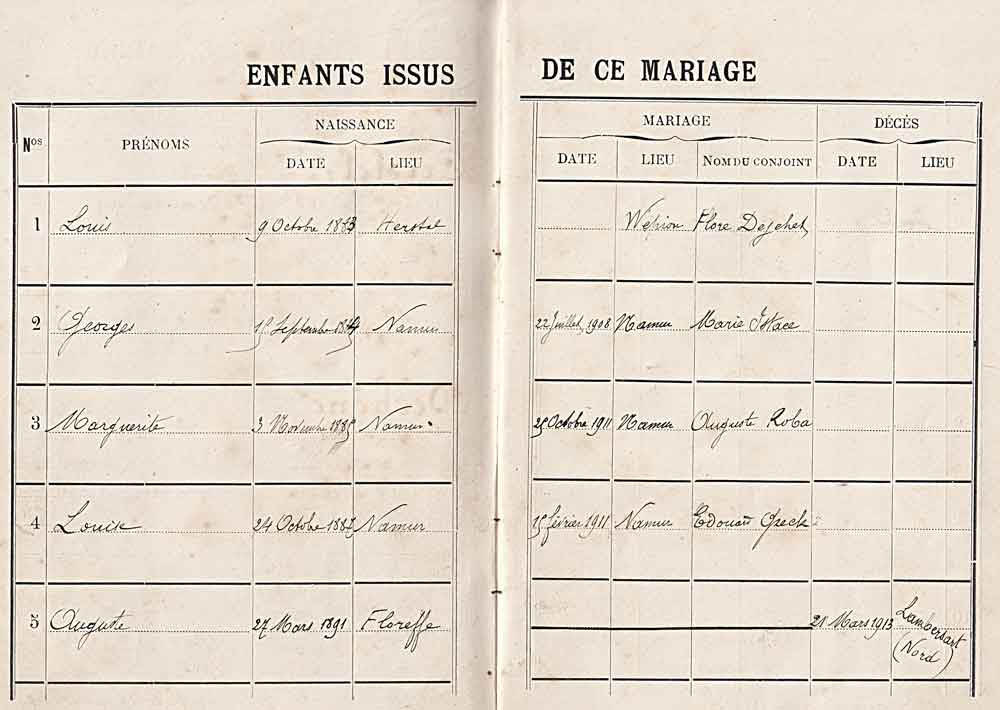 ENFANTS ISSUS DE CE MARIAGE
Nos PRÉNOMS NAISSANCE MARIAGE DÉCÈS
DATE LIEU DATE LIEU NOM DU CONJOINT DATE LIEU
1 Louis 9 Octobre Herstal Wépion Flore
2 Georges Septembre Namur 22 Juillet 1908 Namur Marie
3 Marguerite 3 Novembre Namur 25 Octobre 1911 Namur Auguste Roba
4 Louise 24 Octobre Namur 15 février 1911 Namur Edouard
5 Auguste 27 Mars 1891 Floreffe 21 Mars 1913 Lambersart
(Nord)